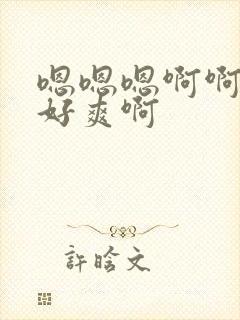 嗯嗯嗯啊啊
好爽啊
許晗文